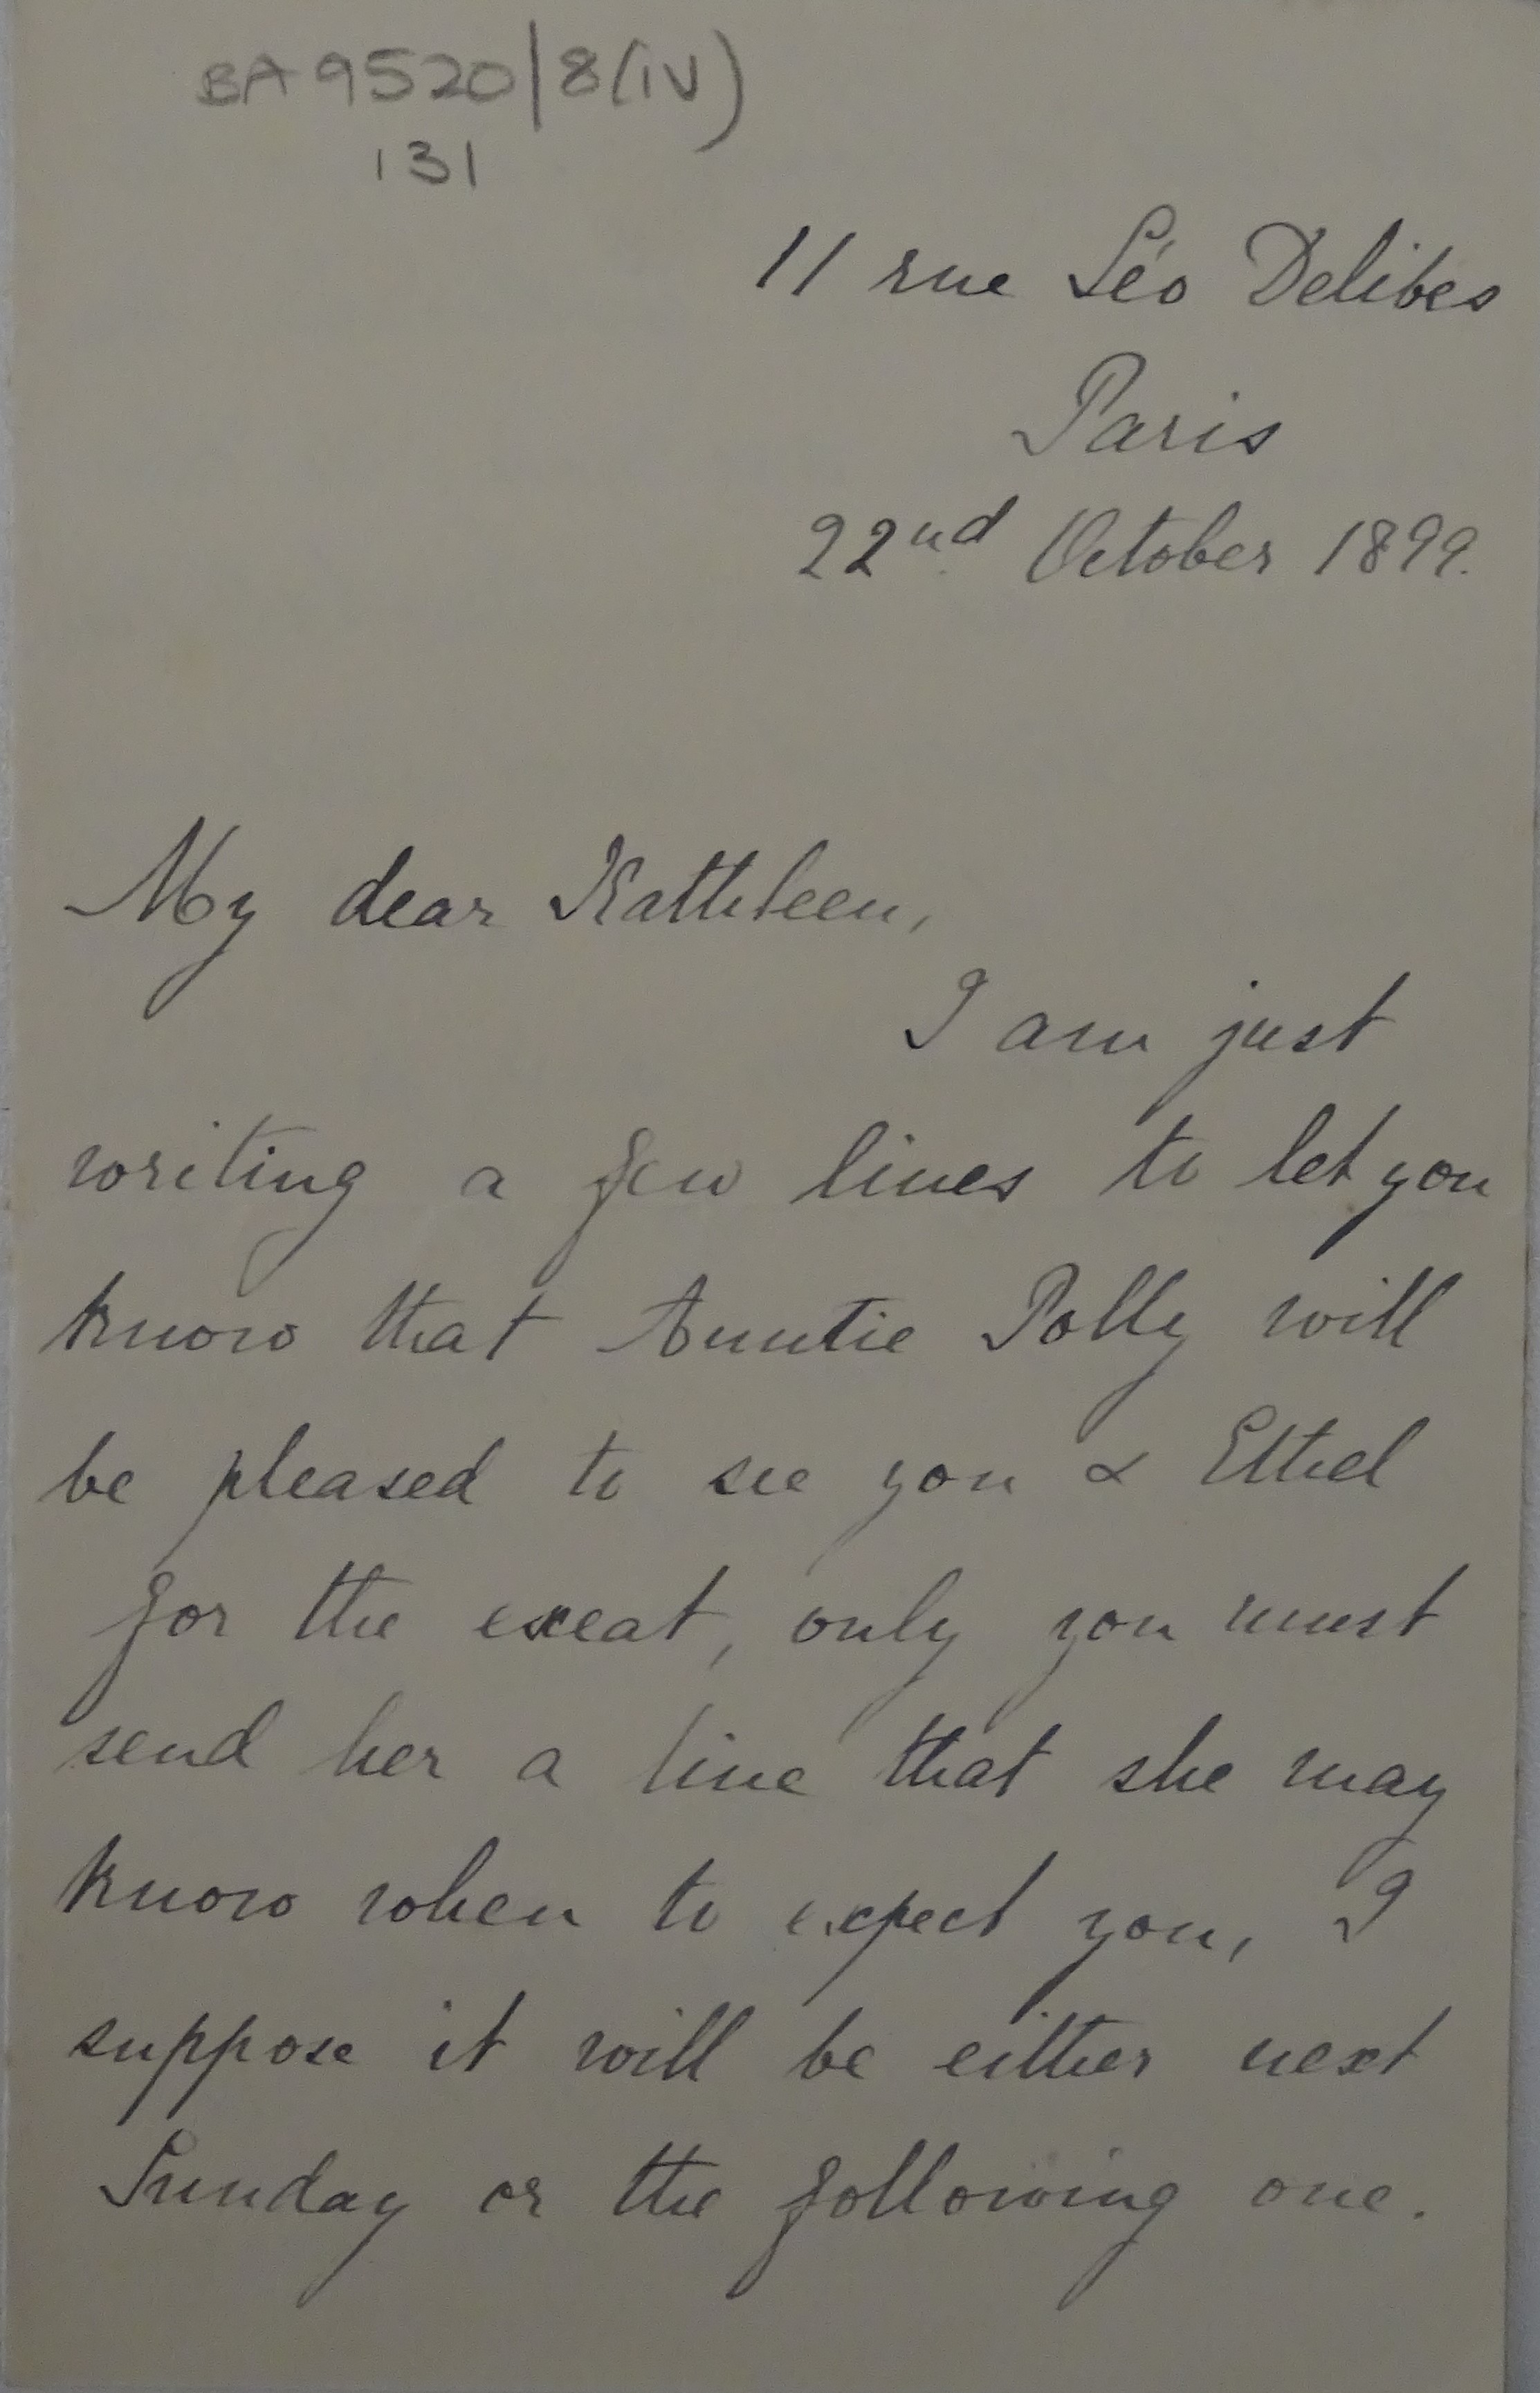 BA 9520/8(iv)
131
11 rue Léo Delibes
Paris
22nd October 1899.
My dear Kathleen,
I am just
writing a few lines to let you
know that Auntie Polly will
be pleased to see you & Ethel
for the exeat, only you must
send her a line that she may
know when to expect you, I
suppose it will be either next
Sunday or the following one.